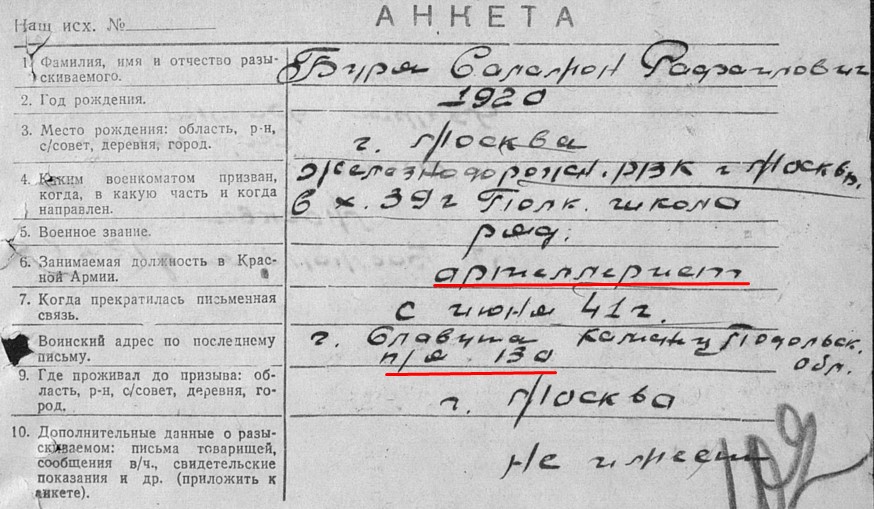 АНКЕТА
Наш исх. №
1. Фамилия, имя и отчество разы-
скиваемого.
Буря Саламон Рафаилович
2. Год рождения.
1920
3. Место рождения: область, р-н,
с/совет, деревня, город.
г. Москва
4. Каким военкоматом призван,
когда, в какую часть и когда
направлен.
Железнодорожн. РВК г Москвы.
в X. 39 г Полк. школа
5. Военное звание.
ряд.
6. Занимаемая должность в Крас-
ной Армии.
артиллерист
7. Когда прекратилась письменная
связь.
с июня 41 г.
Воинский адрес по последнему
письму.
г. Славута Каменц Подольск.
обл.
п/я 130
9. Где проживал до призыва: об-
ласть, р-н, с/совет, деревня, го-
род.
г. Москва
10. Дополнительные данные о разы-
скиваемом: письма товарищей,
сообщения в/ч., свидетельские
показания и др. (приложить к
анкете).
Не имеет
102